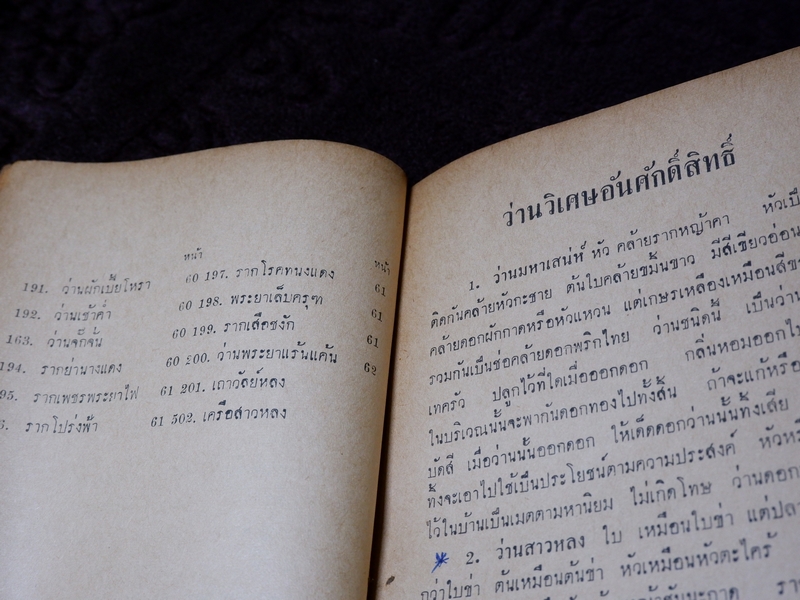 หน้า
หน้า
191. ว่านผักเบี้ยโหรา 60
192. ว่านเช้าค่ำ 60
163. ว่านจ๊กจั่น 60
194. รากย่านางแดง 60
95. รากเพชรพระยาไฟ 61
6. รากโปร่งฟ้า 61
197. รากโรคทนงแดง 61
198. พระยาเล็บครุฑ 61
199. รากเสือชงัก 61
200. ว่านพระยาแร้นแค้น 62
201. เถาวัลย์หลง
502. เครือสาวหลง
ว่านวิเศษอันศักดิ์สิทธิ์
1. ว่านมหาเสน่ห์ หัว คล้ายรากหญ้าคา หัวเป็
ติดกันคล้ายหัวกะชาย ต้นใบคล้ายขมิ้นขาว มีสีเขียวอ่อน
คล้ายดอกผักกาดหรือหัวแหวน แต่เกษรเหลืองเหมือนสีข
รวมกันเป็นช่อคล้ายดอกพริกไทย ว่านชนิดนี้ เป็นว่าน
เทครัว ปลูกไว้ที่ใดเมื่อออกดอก กลิ่นหอมออกไ
ในบริเวณนั้นจะพากันดอกทองไปทั้งสิ้น ถ้าจะแก้หรือ
บัดสี เมื่อว่านนั้นออกดอก ให้เด็ดดอกว่านนั้นทิ้งเสีย
ทั้งจะเอาไปใช้เป็นประโยชน์ตามความประสงค์ หัวหรื
ไว้ในบ้านเป็นเมตตามหานิยม ไม่เกิดโทษ ว่านดอก
2. ว่านสาวหลง ใบ เหมือนใบข่า แต่ปลา
กว่าใบข่า ต้นเหมือนต้นข่า หัวเหมือนหัวตะไคร้